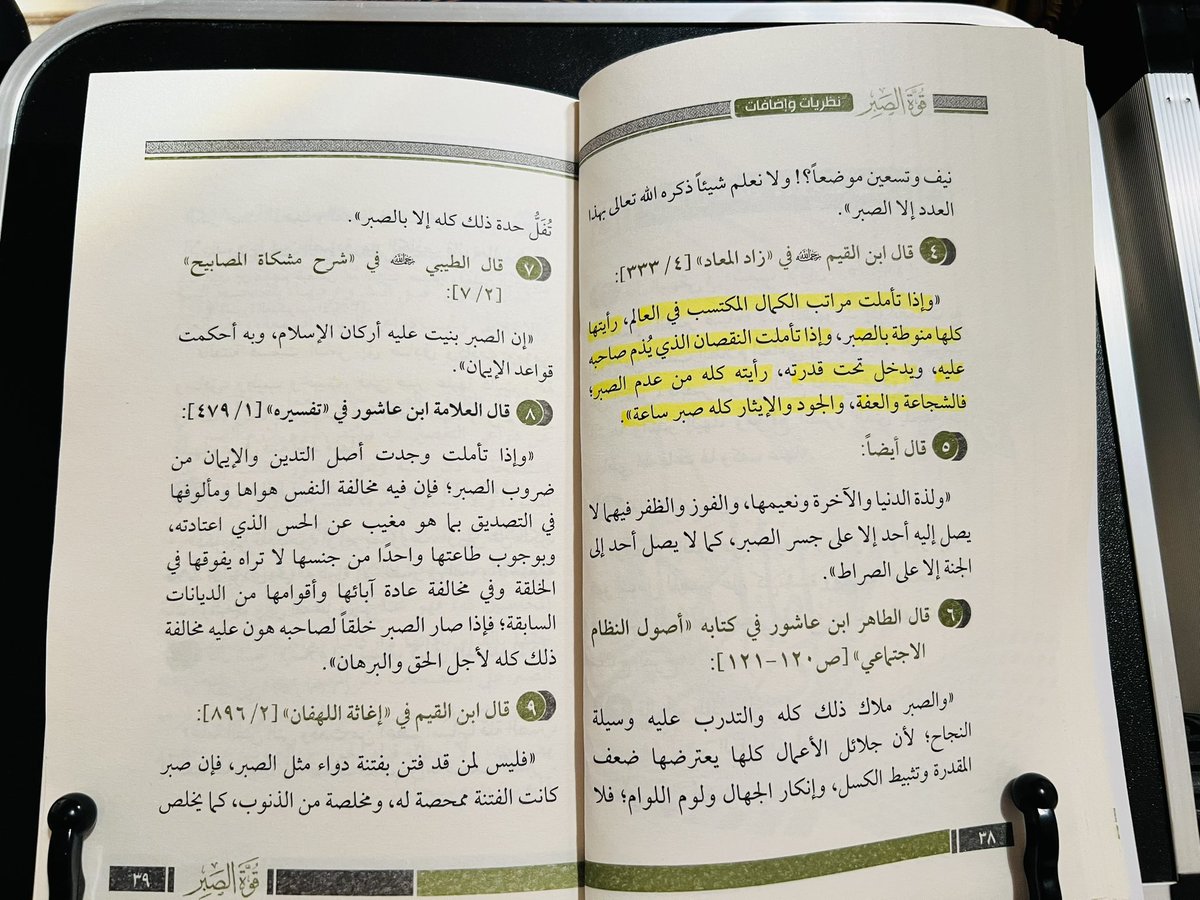 قوة الصبر
نظريات وإضافات
نيف وتسعين موضعاً؟! ولا نعلم شيئاً ذكره الله تعالى بهذا
العدد إلا الصبر».
٤ قال ابن القيم رحمه الله في «زاد المعاد» [٤/ ٣٣٣]:
«وإذا تأملت مراتب الكمال المكتسب في العالم، رأيتها
كلها منوطة بالصبر، وإذا تأملت النقصان الذي يُذم صاحبه
عليه، ويدخل تحت قدرته، رأيته كله من عدم الصبر؛
فالشجاعة والعفة، والجود والإيثار كله صبر ساعة».
٥ قال أيضاً:
«ولذة الدنيا والآخرة ونعيمها، والفوز والظفر فيهما لا
يصل إليه أحد إلا على جسر الصبر، كما لا يصل أحد إلى
الجنة إلا على الصراط».
٦ قال الطاهر ابن عاشور في كتابه «أصول النظام
الاجتماعي» [ص١٢٠-١٢١]:
«والصبر ملاك ذلك كله والتدرب عليه وسيلة
النجاح؛ لأن جلائل الأعمال كلها يعترضها ضعف
المقدرة وتثبيط الكسل، وإنكار الجهال ولوم اللوام؛ فلا
٣٨
تُفَلُّ حدة ذلك كله إلا بالصبر».
٧ قال الطيبي رحمه الله في «شرح مشكاة المصابيح»
[٧/٢]:
«إن الصبر بنيت عليه أركان الإسلام، وبه أحكمت
قواعد الإيمان».
٨ قال العلامة ابن عاشور في «تفسيره» [١/ ٤٧٩]:
«وإذا تأملت وجدت أصل التدين والإيمان من
ضروب الصبر؛ فإن فيه مخالفة النفس هواها ومألوفها
في التصديق بما هو مغيب عن الحس الذي اعتادته،
وبوجوب طاعتها واحدًا من جنسها لا تراه يفوقها في
الخلقة وفي مخالفة عادة آبائها وأقوامها من الديانات
السابقة؛ فإذا صار الصبر خلقاً لصاحبه هون عليه مخالفة
ذلك كله لأجل الحق والبرهان».
٩ قال ابن القيم في «إغاثة اللهفان» [٢/ ٨٩٦]:
«فليس لمن قد فتن بفتنة دواء مثل الصبر، فإن صبر
كانت الفتنة ممحصة له، ومخلصة من الذنوب، كما يخلص
قوة الصبر
٣٩